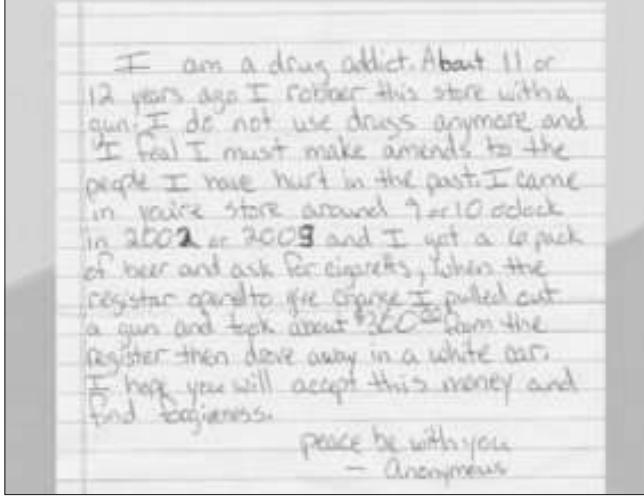 I am a drug addict. About 11 or
12 years ago I robber this store with a
gun. I do not use drugs anymore and
I feal I must make amends to the
people I have hurt in the past. I came
in youire store around 9 or 10 oclock
in 2002 or 2003 and I got a 6 pack
of beer and ask for cigaretts, when the
registar opend to give change I pulled out
a gun and took about $300.00 from the
register then drove away in a white car.
I hope you will accept this money and
find forgieness.
peace be with you
— Anonymous